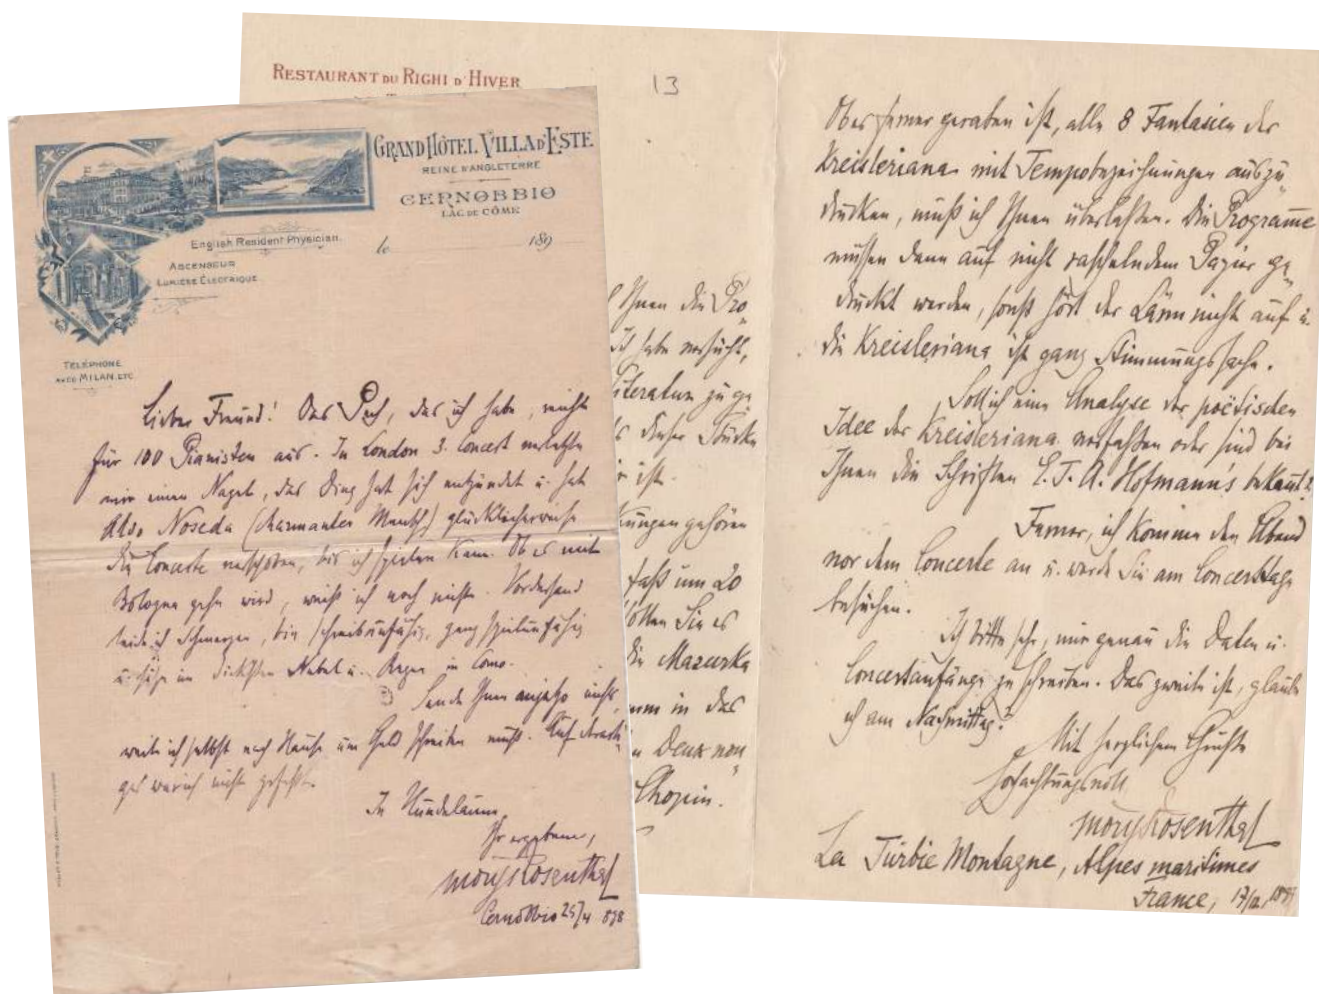 GRAND HÔTEL VILLA D'ESTE
REINE D'ANGLETERRE
CERNOBBIO
LAC DE CÔME
English Resident Physician.
le 189
ASCENSEUR
LUMIÈRE ÉLECTRIQUE
TÉLÉPHONE
AVEC MILAN, ETC
Lieber Freund! Das Pech, das ich habe, reicht
für 100 Pianisten aus. In London 3. Concert verletzte
mir einen Nagel, das Ding hat sich entzündet u. hat
Noseda (charmanter Mensch) glücklicherweise
die Concerte verschoben, bis ich spielen kann. Ob es mit
Bologna gehn wird, weiß ich noch nicht. Vorderhand
leide ich Schmerzen, bin schreibunfähig, ganz spielunfähig
u. sitze im dicksten Nebel u. Regen in Como.
Sende Ihnen nichts,
weil ich selbst nach Hause um Geld schreiben muß. Auf
war ich nicht gefaßt.
In Hundelaune
Ihr ergebener,
Moriz Rosenthal
Cernobbio 25/4 898
RESTAURANT DU RIGHI D'HIVER
13
Ihnen die Pro„
Ich habe versucht,
Literatur zu ge„
dieser Stücke
ist.
gehören
um 20
Sie es
die Mazurka
in das
Deux non„
Chopin.
Ob es ferner geraten ist, alle 8 Fantasien der
Kreisleriana mit Tempobezeichnungen auszu„
drucken, muß ich Ihnen überlassen. Die Programme
müssen dann auf nicht raschelndem Papier ge„
druckt werden, sonst hört der Lärm nicht auf u.
die Kreisleriana ist ganz Stimmungssache.
Soll ich eine Analyse der poëtischen
Idee der Kreisleriana verfassen oder sind bei
Ihnen die Schriften E. T. A. Hofmann's bekannt?
Ferner, ich komme den Abend
vor dem Concerte an u. werde Sie am Concerttage
besuchen.
Ich bitte sehr, mir genau die Daten u.
Concertanfänge zu schreiben. Das zweite ist, glaube
ich am Nachmittag?
Mit herzlichem Gruße
Hochachtungsvoll
Moriz Rosenthal
La Turbie Montagne, Alpes maritimes
France,